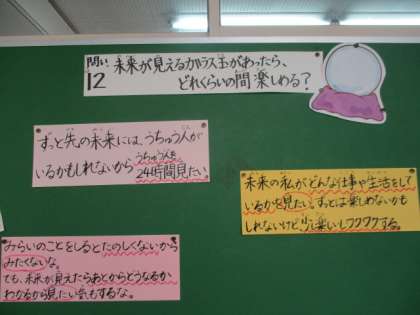 問い
12
未来が見えるガラス玉があったら、
どれくらいの間楽しめる?
ずっと先の未来には、うちゅう人が
いるかもしれないからうちゅう人を
24時間見たい
未来の私がどんな仕事や生活をして
いるかを見たい。ずっとは楽しめないかも
しれないけど少し楽しいしワクワクする。
みらいのことをしるとたのしくないから
みたくないな。
でも、未来が見えたらあとからどうなるか
わかるから見たい気もするな。